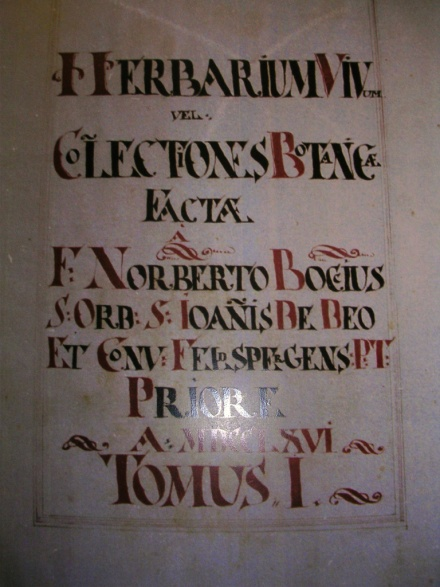 HERBARIUM VIVUM
VEL.
COLLECTIONES BOTANICÆ
FACTÆ
A
F: NORBERTO BOCCIUS
S: ORD: S: IOAÑIS DE DEO
ET CONV: FELDSPERGENS: P.T:
PRIORE
A. MDCCLXVI.
TOMUS I.